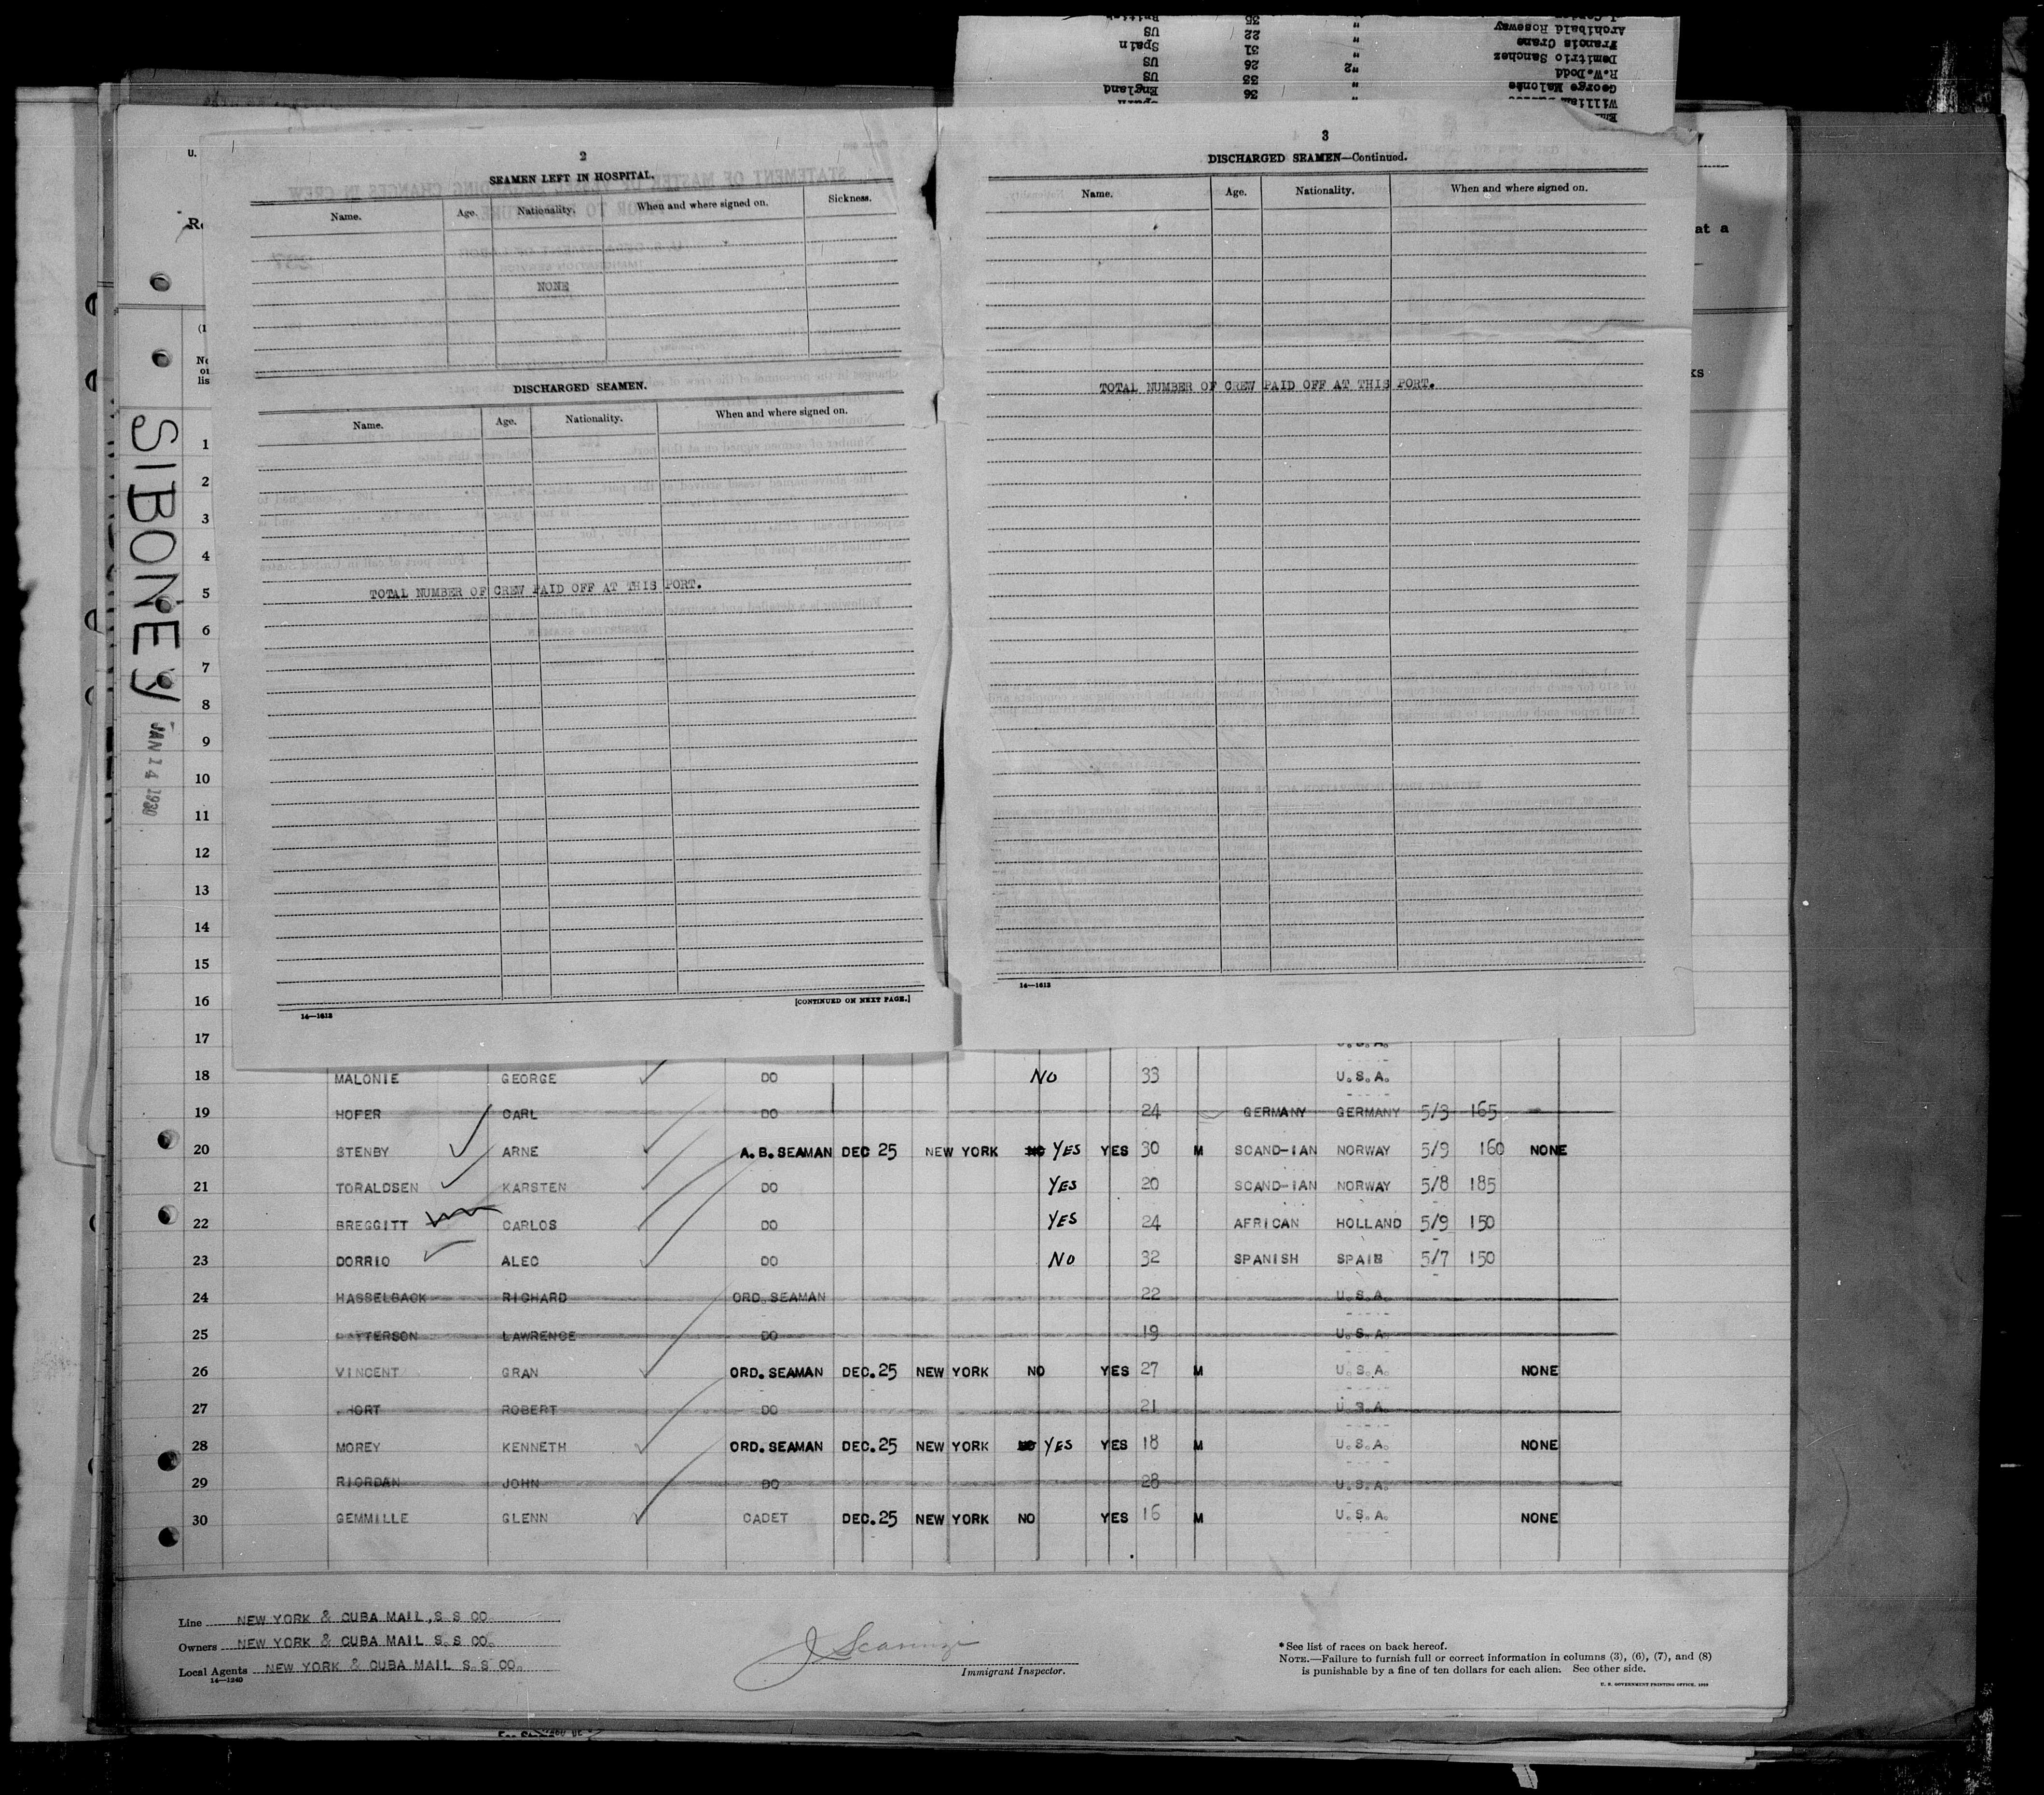 2
SEAMEN LEFT IN HOSPITAL.
Name. Age. Nationality. When and where signed on. Sickness.
NONE
DISCHARGED SEAMEN.
Name. Age. Nationality. When and where signed on.
TOTAL NUMBER OF CREW PAID OFF AT THIS PORT.
[CONTINUED ON NEXT PAGE.]
14—1613
3
DISCHARGED SEAMEN—Continued.
Name. Age. Nationality. When and where signed on.
TOTAL NUMBER OF CREW PAID OFF AT THIS PORT.
14—1613
British
Archibald Roseway " 22 US
Francis Crane " 31 Spain
Demitrio Sanchez "2 26 US
R.W.Dodd " 33 US
George Malonie " 36 England
U.
at a
SIBONEY
JAN 14 1930
1
2
3
4
5
6
7
8
9
10
11
12
13
14
15
16
17 U.S.A.
18 MALONIE GEORGE DO NO 33 U.S.A.
19 HOFER CARL DO 24 GERMANY GERMANY 5/3 165
20 STENBY ARNE A.B. SEAMAN DEC 25 NEW YORK NO YES YES 30 M SCAND-IAN NORWAY 5/9 160 NONE
21 TORALDSEN KARSTEN DO YES 20 SCAND-IAN NORWAY 5/8 185
22 BREGGITT CARLOS DO YES 24 AFRICAN HOLLAND 5/9 150
23 DORRIO ALEC DO NO 32 SPANISH SPAIN 5/7 150
24 HASSELBACK RICHARD ORD. SEAMAN 22 U.S.A.
25 PATTERSON LAWRENCE DO 19 U.S.A.
26 VINCENT GRAN ORD. SEAMAN DEC. 25 NEW YORK NO YES 27 M U.S.A. NONE
27 SHORT ROBERT DO 21 U.S.A.
28 MOREY KENNETH ORD. SEAMAN DEC. 25 NEW YORK NO YES YES 18 M U.S.A. NONE
29 RIORDAN JOHN DO 28 U.S.A.
30 GEMMILLE GLENN CADET DEC. 25 NEW YORK NO YES 16 M U.S.A. NONE
Line NEW YORK & CUBA MAIL, S S CO.
Owners NEW YORK & CUBA MAIL S. S CO.
Local Agents NEW YORK & CUBA MAIL S. S CO.
14—1240
Immigrant Inspector.
* See list of races on back hereof.
NOTE.—Failure to furnish full or correct information in columns (3), (6), (7), and (8)
is punishable by a fine of ten dollars for each alien. See other side.
U. S. GOVERNMENT PRINTING OFFICE, 1929